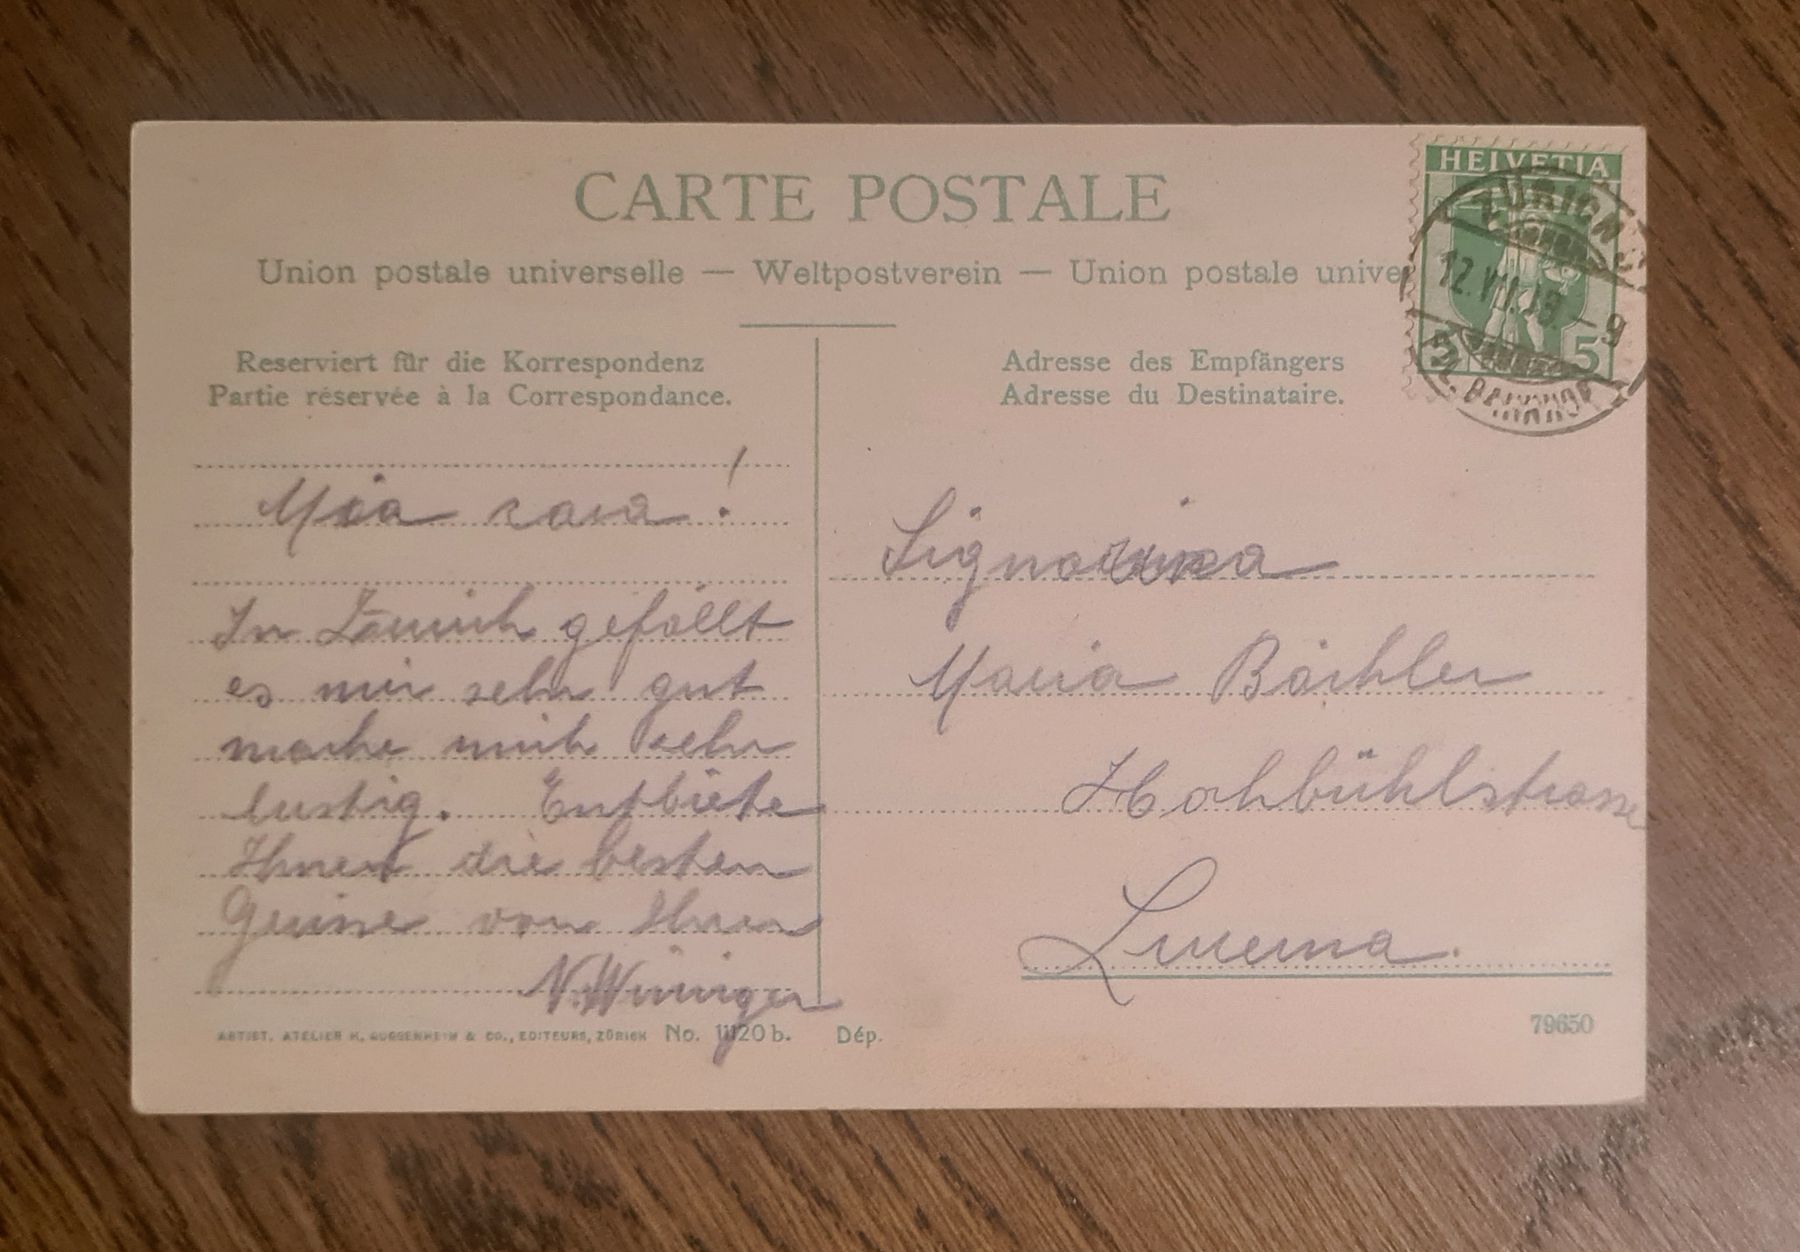 CARTE POSTALE
Union postale universelle — Weltpostverein — Union postale unive
HELVETIA
ZÜRICH
12.VII.19. – 9
BAHNHOF
5 5
Reserviert für die Korrespondenz
Partie réservée à la Correspondance.
Mia cara!
In Zürich gefällt
es mir sehr gut
mache mich sehr
lustig. Entbiete
Ihnen die besten
Grüsse von Ihren
N. Wininger
Adresse des Empfängers
Adresse du Destinataire.
Signorina
Maria Bächler
Hochbühlstrasse
Lucerna.
ARTIST. ATELIER H. GUGGENHEIM & CO., EDITEURS, ZÜRICH No. 11120 b. Dép.
79650